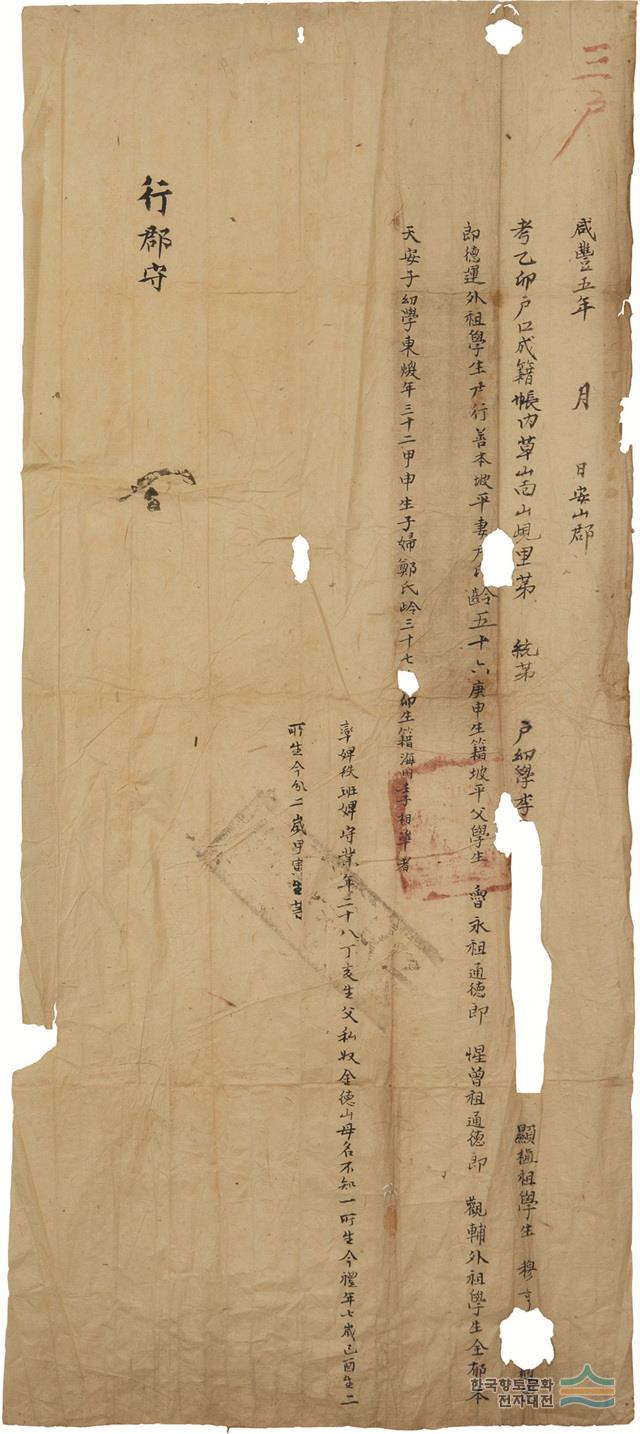 三戶
咸豊五年 月 日安山郡
考乙卯戶口成籍帳內草山面山峴里第 統第 戶幼學李 顯植祖學生 穆亨
即德運外祖學生尹行善本坡平妻尹氏齡五十六庚申生籍坡平父學生 魯永祖通德郎 惺曾祖通德郎 觀輔外祖學生全郁本
天安子幼學東 年三十二甲申生子婦鄭氏齡三十七 卯生籍海州李相 者
率婢秩班婢守業年二十八丁亥生父私奴金德山母名不知一所生今禮年七歲己酉生二
所生今分二歲甲寅生等
行郡守
한국향토문화
전자대전